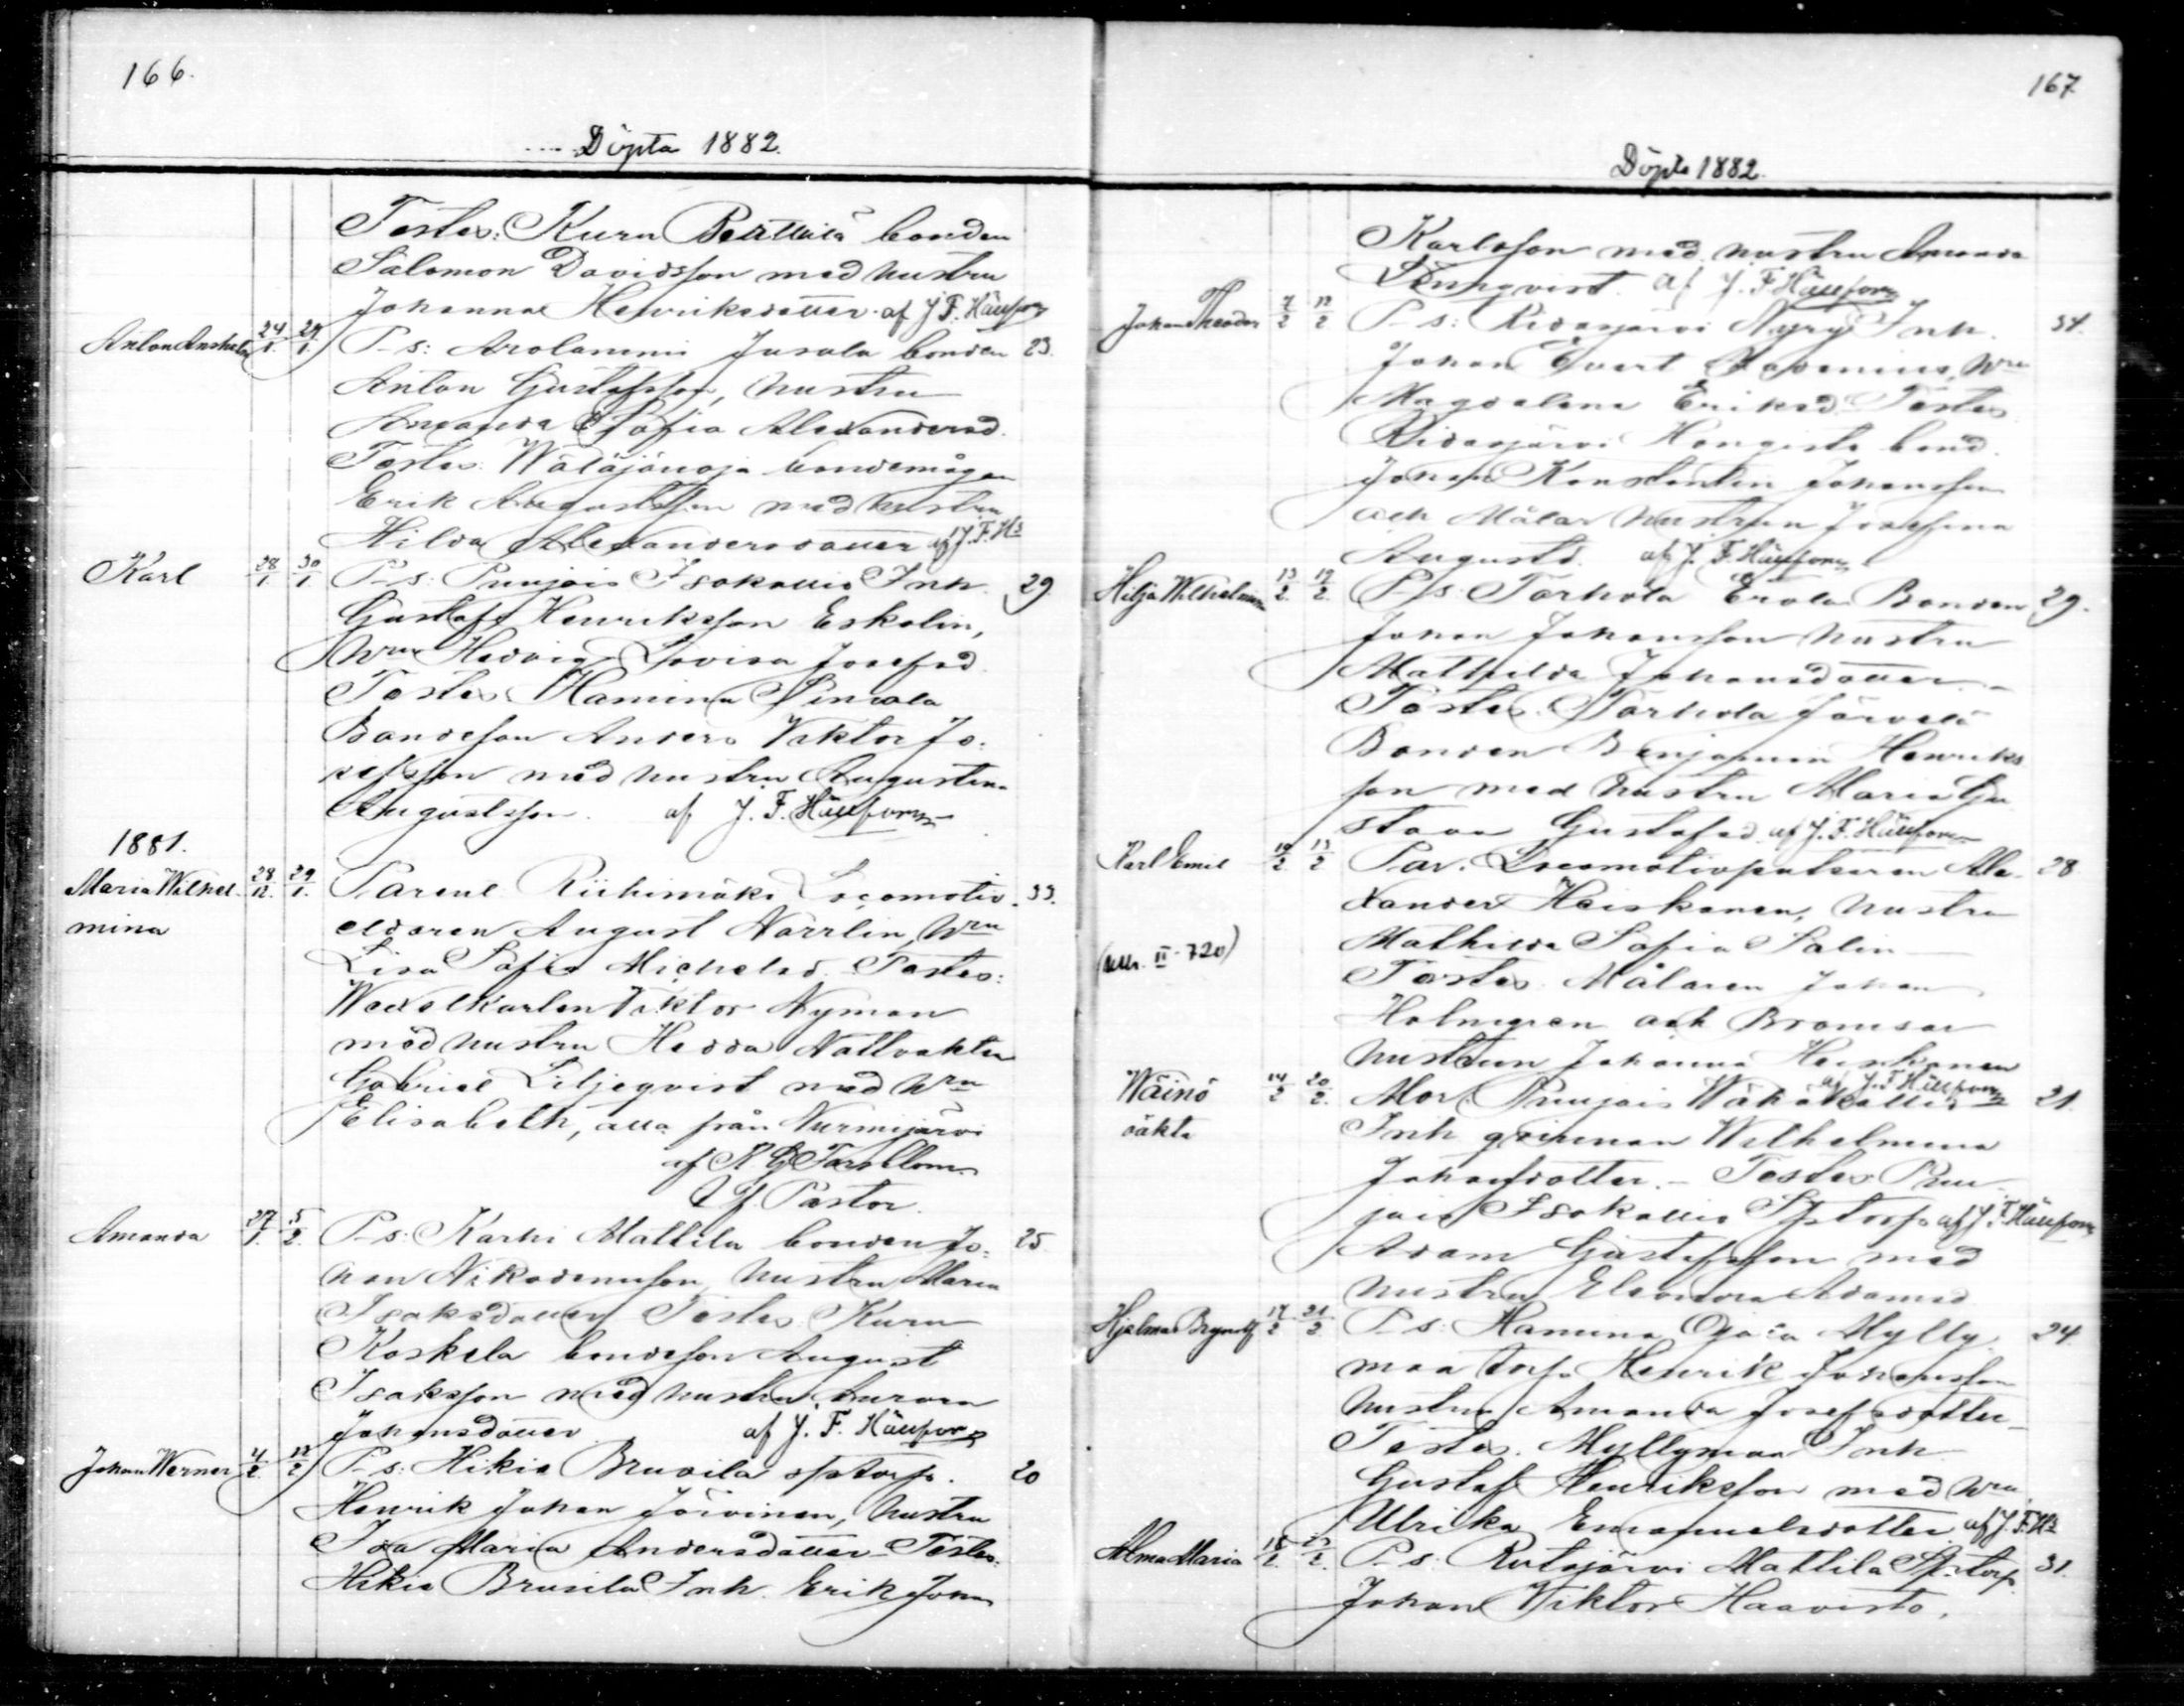 166.
Döpta 1882.
Testes: Kuru Penttilä bonden
Salomon Davidsson med hustru
Johanna Henriksdotter. af J. F. Hällfors
Anton Anshelm 24/1 29/1 P-s: Arolammi Jusola bonden 23.
Anton Gustafsson, hustru
Amanda Sofia Alexandersd.
Testes: bondemågen
Erik Augustsson med hustru
Hilda Alexandersdotter af J. F. Hs
Karl 28/1 30/1 P-s: Punjois Isokallio Inh. 29
Gustaf Henriksson Eskolin,
Hru Hedvig Lovisa Josefsd.
Testes: Hamina
Bondeson Anders Viktor Jo-
sefsson med hustru Augustina
Augustsson. af J. F. Hällfors
1881.
Maria Wilhel- 28/12 29/1 Parent Riihimäki Locomotiv- 33.
mina eldaren August Norrlin, Hru
Lisa Sofia Michelsd. Testes:
Wexelkarlen Viktor Nyman
med hustru Hedda Nattvakten
Gabriel Liljeqvist med Hru
Elisabeth, alla från Nurmijärvi
af K. G. Forsblom
Vf. Pastor.
Amanda 27/1 5/2 P-s: Karhi Mattila bonden Jo- 25
han Nikodemusson, hustru Maria
Isaksdotter Testes Kuru
Koskela bondeson August
Isaksson med hustru Aurora
Johansdotter af J. F. Hällfors
Johan Werner 4/2 12/2 P-s: Hikiä Bruusila sptorp. 20
Henrik Johan Järvinen, hustru
Ida Maria Andersdotter Testes:
Hikiä Bruusila Inh. Erik Johan
167
Döpta 1882.
Karlsson med hustru Amanda
Lönnqvist. af J. F. Hällfors
Johan Theodor 7/2 12/2 P-s: Ridasjärvi Nyry Inh. 34.
Johan Evert Hru
Magdalena Eriksd. Testes
Ridasjärvi Hongisto bond.
Johan Konstantin Johansson
och Målar hustrun Josefina
Augustd. af J. F. Hällfors
Hilja Wilhelmina 13/2 19/2 P-s: Torhola Erola Bonden 29.
Johan Johansson hustru
Mathilda Johansdotter.
Testes. Torhola Järvelä
Bonden Benjamin Henriks
son med hustru Maria Gu
stava Gustafsd. af J. F. Hällfors
Karl Emil 10/2 13/2 Par. Locomotivputsaren Ale- 28
xander Heiskanen, hustru
II-720) Mathilda Sofia Salin
Testes. Målaren Johan
Holmgren och Bromsar
hustrun Johanna Heiskanen
af J. F. Hällfors
Wäinö 14/2 20/2 Mor. Punjois Wähäkallio 21
oäkta Inh qvinnan Wilhelmina
Johansdotter. - Testes Pun
jois Isokallio Sptorp. af J. F. Hällfors
Adam Gustafsson med
hustru Eleonora Adamsd
Hjalmar Brynolf 17/2 21/2 P-s: Hamina Ojala Mylly 24.
maa torp. Henrik Johansson
hustru Amanda Josefsdotter
Testes. Myllymaa Inh
Gustaf Henriksson med Hru
Ulrika Emanuelsdotter af J. F. Hs
Alma Maria 18/2 P-s: Rutajärvi Mattila Sptorp. 31.
Johan Viktor Haavisto,